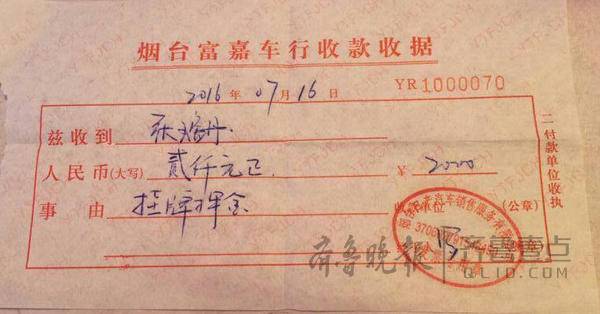 烟台富嘉车行收款收据
2016 年 07 月 16 日 YR 1000070
兹收到 张 丹
人民币(大写) 贰仟元正 ¥ 2000
事由 挂牌押金 收款单位 (公章)
二付款单位收执
齐鲁晚报 齐鲁壹点
QLID.COM